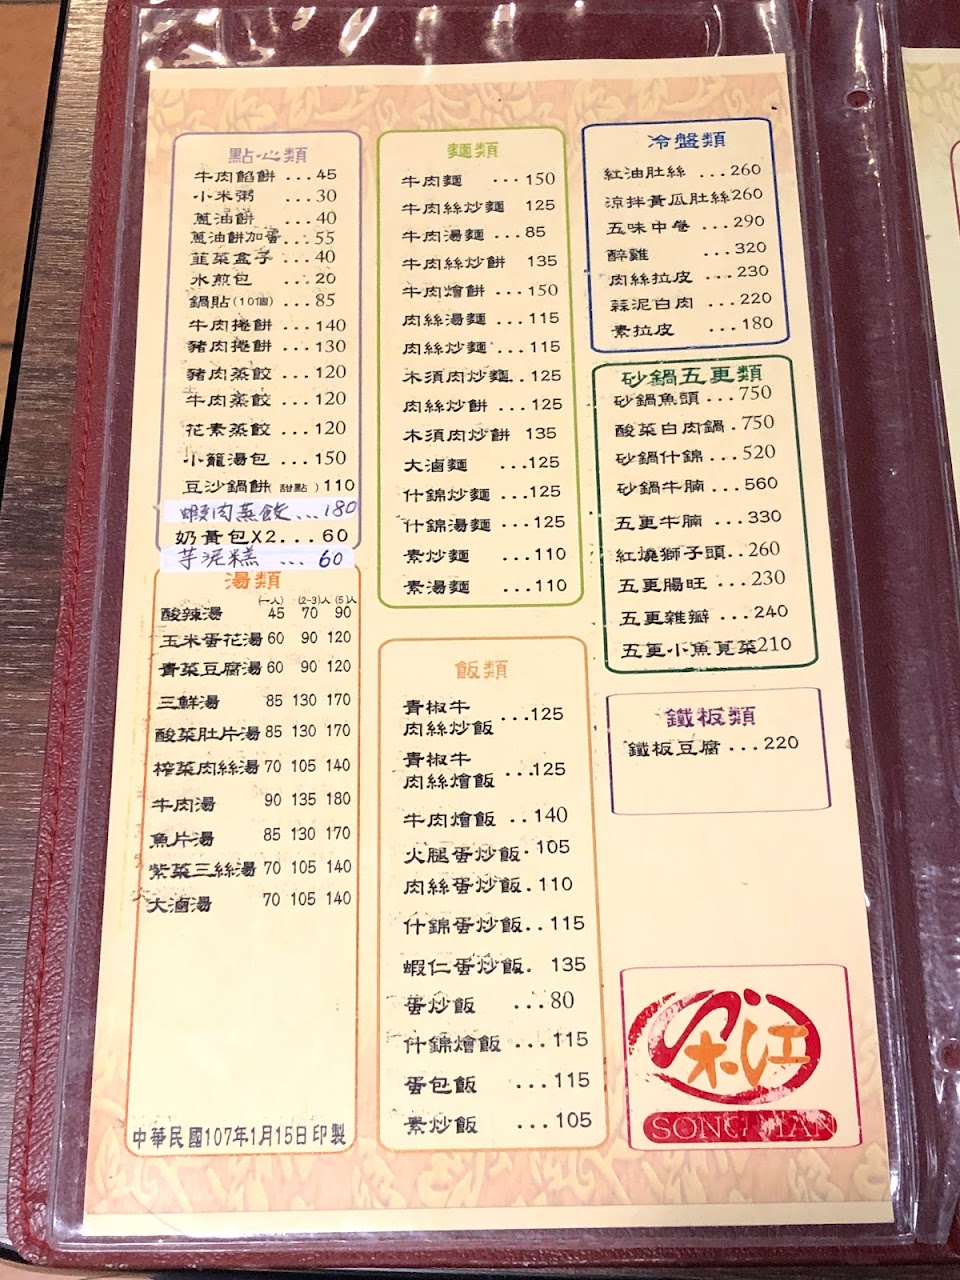 點心類
牛肉餡餅 ...45
小米粥 ...30
蔥油餅 ...40
蔥油餅加蛋...55
韮菜盒子...40
水煎包 ...20
鍋貼(10個) ...85
牛肉捲餅 ...140
豬肉捲餅 ...130
豬肉蒸餃 ...120
牛肉蒸餃 ...120
花素蒸餃 ...120
小籠湯包 ...150
豆沙鍋餅(甜點)110
蝦肉蒸餃...180
奶黃包X2...60
芋泥糕 ... 60
湯類
(一人) (2-3)人 (5)人
酸辣湯 45 70 90
玉米蛋花湯 60 90 120
青菜豆腐湯 60 90 120
三鮮湯 85 130 170
酸菜肚片湯 85 130 170
榨菜肉絲湯 70 105 140
牛肉湯 90 135 180
魚片湯 85 130 170
紫菜三絲湯 70 105 140
大滷湯 70 105 140
中華民國107年1月15日印製
麵類
牛肉麵 ...150
牛肉絲炒麵 125
牛肉湯麵...85
牛肉絲炒餅 135
牛肉燴餅 ...150
肉絲湯麵 ...115
肉絲炒麵 ...115
木須肉炒麵..125
肉絲炒餅 ...125
木須肉炒餅 135
大滷麵 ...125
什錦炒麵 ...125
什錦湯麵 ...125
素炒麵 ...110
素湯麵 ...110
飯類
青椒牛
肉絲炒飯 ...125
青椒牛
肉絲燴飯 ...125
牛肉燴飯 ..140
火腿蛋炒飯.105
肉絲蛋炒飯.110
什錦蛋炒飯..115
蝦仁蛋炒飯. 135
蛋炒飯 ...80
什錦燴飯 ...115
蛋包飯 ...115
素炒飯 ...105
冷盤類
紅油肚絲 ...260
涼拌黃瓜肚絲260
五味中卷 ...290
醉雞 ...320
肉絲拉皮 ...230
蒜泥白肉 ...220
素拉皮 ...180
砂鍋五更類
砂鍋魚頭...750
酸菜白肉鍋.750
砂鍋什錦...520
砂鍋牛腩...560
五更牛腩...330
紅燒獅子頭..260
五更腸旺...230
五更雜瓣...240
五更小魚莧菜210
鐵板類
鐵板豆腐...220
松江
SONG JIAN